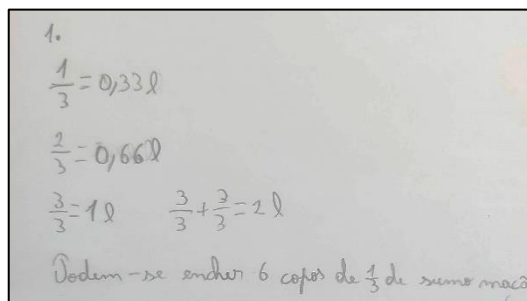 1.
1/3 = 0,33 l
2/3 = 0,66 l
3/3 = 1 l 3/3 + 3/3 = 2 l
Podem-se encher 6 copos de 1/3 de sumo maçã